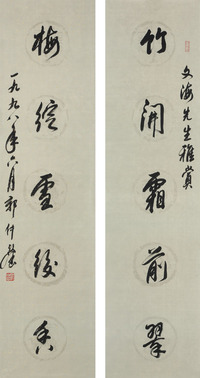 文海先生雅賞
竹開霜前翠
梅綻雪後香
一九九八年六月郭仲選